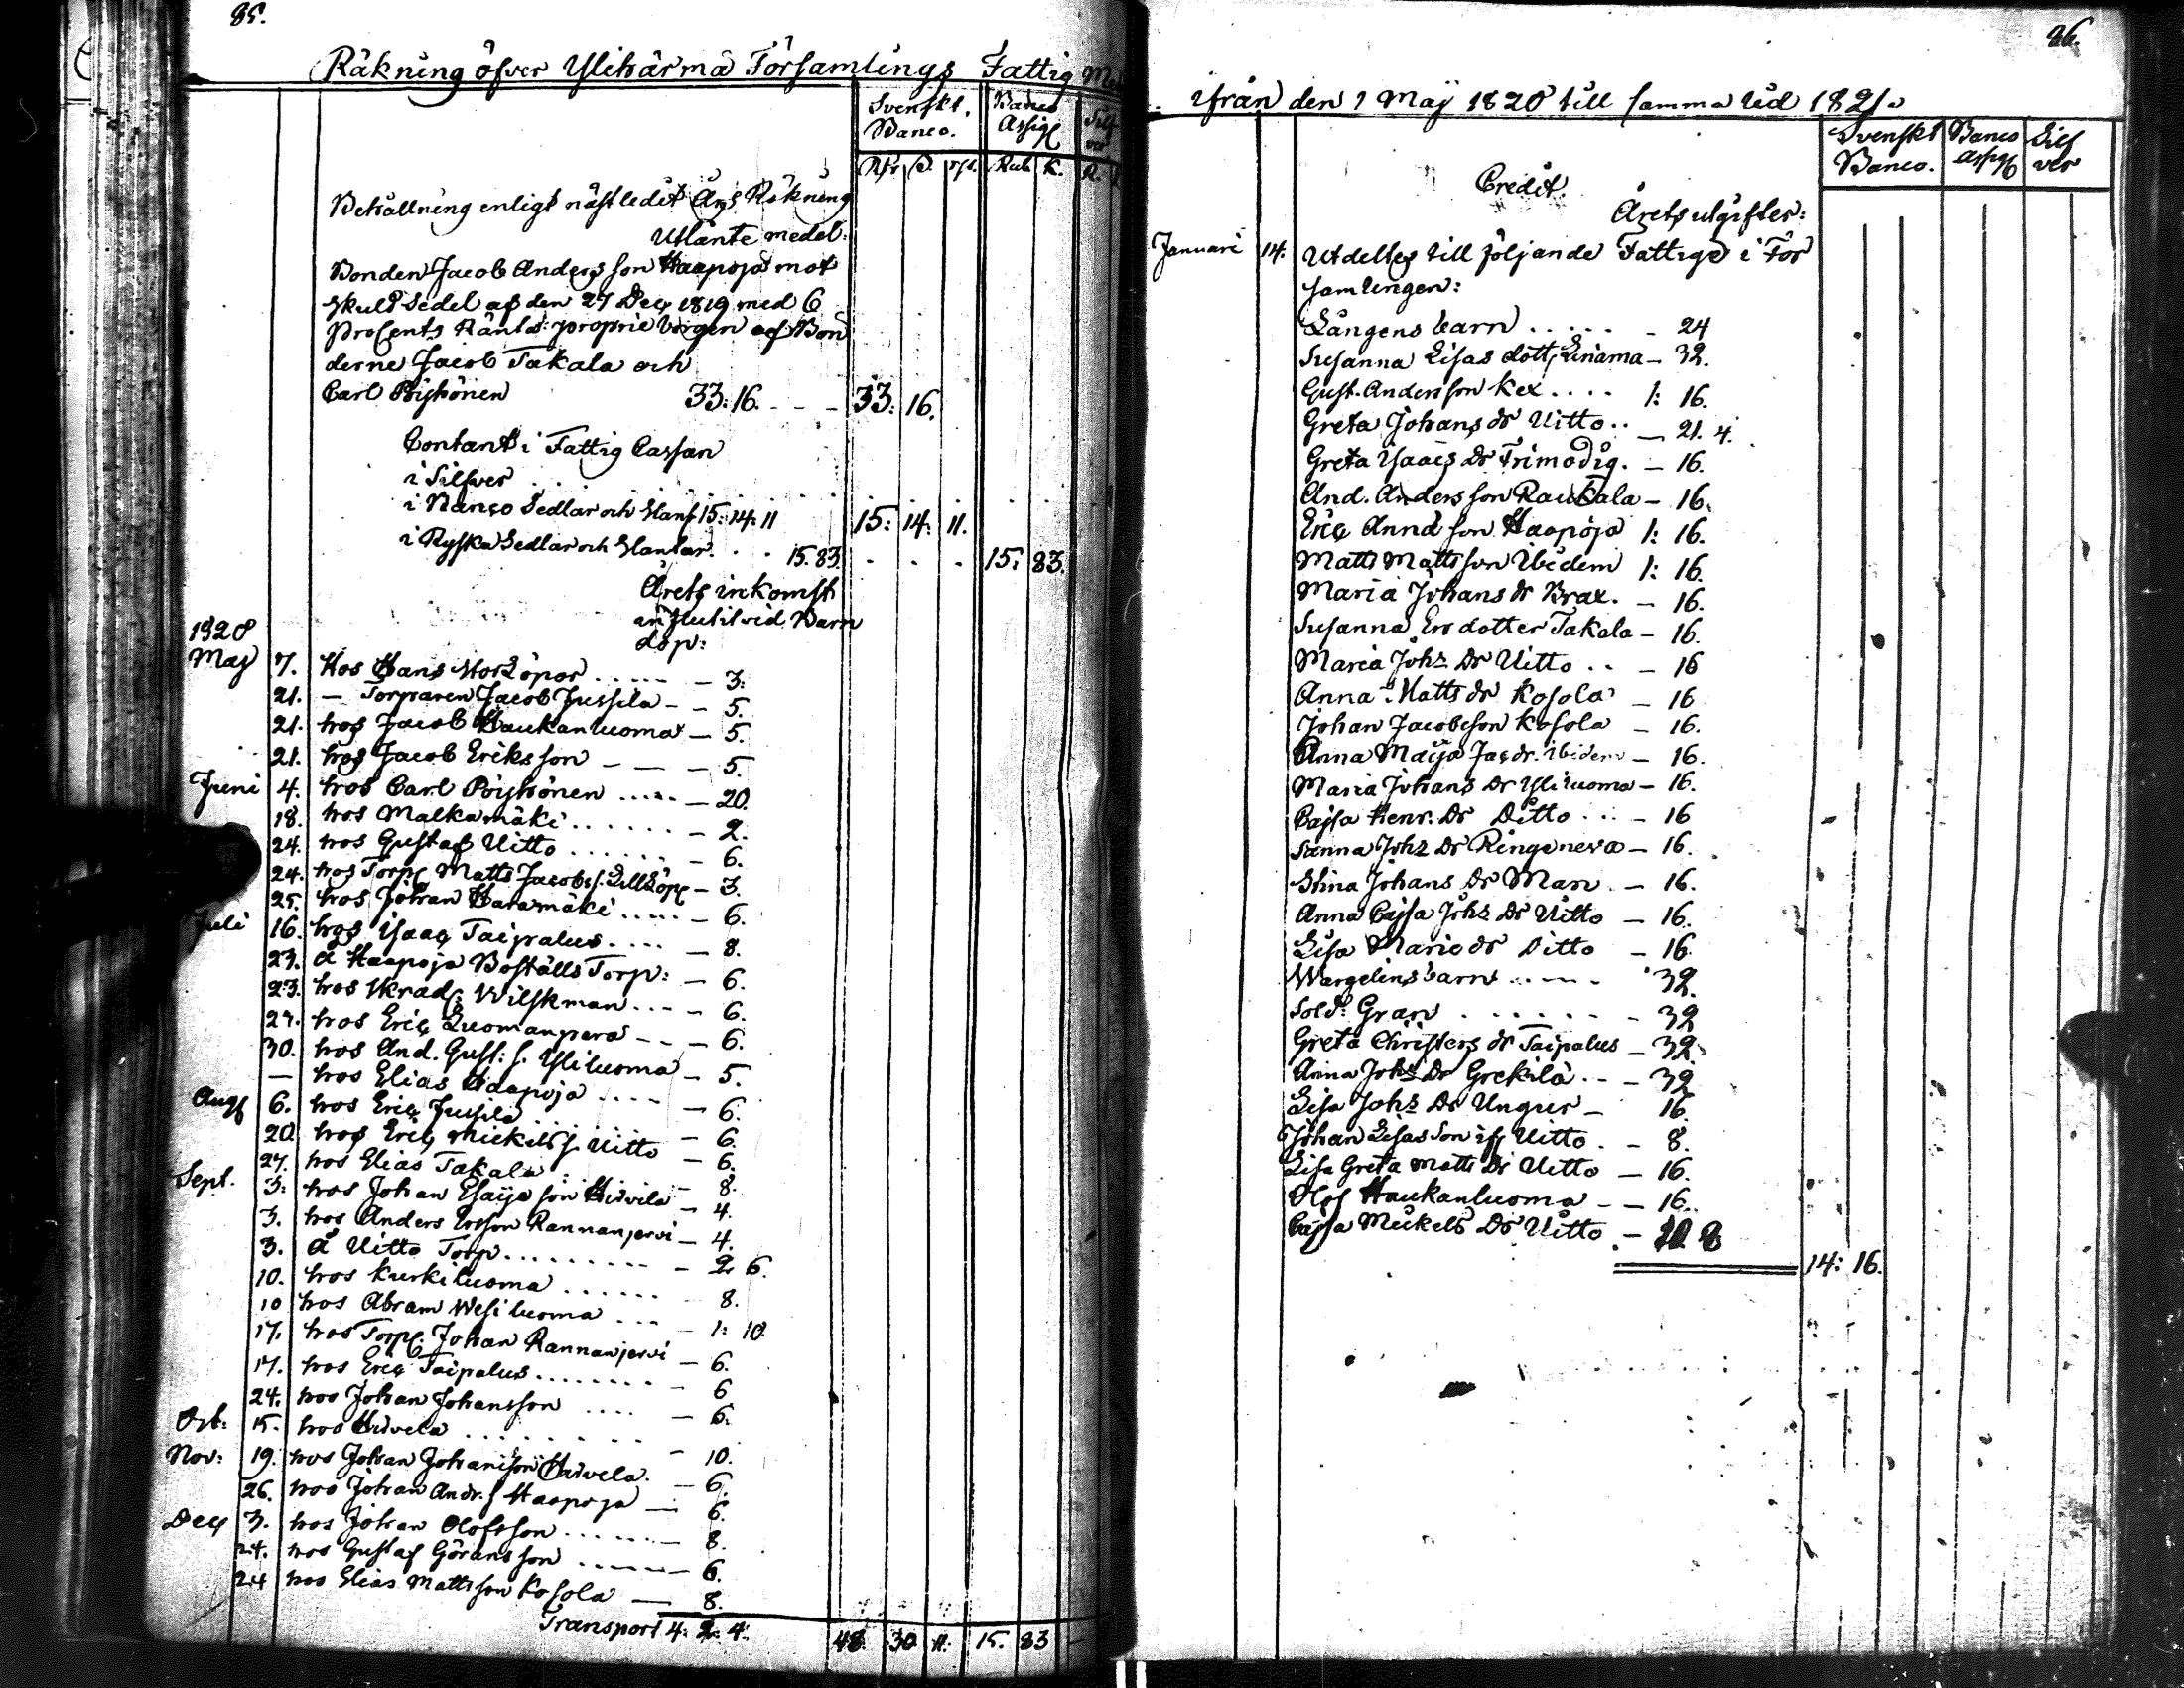 85.
Räkning öfver Ylihärmä Församlings Fattig
Svenskt. Banco
Banco. Assig Silf
ver
Rdr s. rst. Rub K. R.
Behållning enligt näst ledit Års Räkning
Utlånte medel:
Bonden Jacob Anders son Haapoja mot
skuld Sedel af den 27 Dec 1819 med 6
Procents Ränta: proprie borgen af Bon
derne Jacob Takala och
Carl Pöyhönen 33: 16. - - - 33: 16.
Contant i Fattig Cassan
i Silfver
i Banco Sedlar och Slant 15: 14: 11 15: 14: 11.
i Ryska Sedlar och Slantar. . . 15. 83. 15: 83.
Årets inkomst
influtit vid Barn
dop:
1820
Maj 7. Hos Hans Storköpor ..... - 3:
21. - Torparen Jacob Jussila - - 5.
21. hos Jacob Haukanluoma - 5.
21. hos Jacob Eriksson - - - 5.
Juni 4. hos Carl Pöyhönen ..... - 20.
18. hos Malkamäki ...... - 2.
24. hos Gustaf Uitto ...... - 6.
24. hos Torp Matts Jacobs s. Lillköp - 3.
25. hos Johan Haramäki ..... - 6.
Juli 16. hos Isaac Taipalus .... - 8.
23. å Haapoja Boställs Torp: - 6.
23. hos skrad: Wilskman ... - 6.
27. hos Eric Luomanpera - - - 6.
30. hos And. Gust: s. Yliluoma - 5.
— hos Elias Haapoja .... - 6.
Aug 6. hos Eric Jussila - 6.
20. hos Eric Mickels s. Uitto - 6.
27. hos Elias Takala - 8.
Sept. 3: hos Johan Esaija son Hirvila - 4.
3. hos Anders Ersson Rannanjervi - 4.
3. å Uitto Torp ......... - 2 6.
10. hos Kurkiluoma ...... 8.
10 hos Abram Wesiluoma ... - 1: 10.
17. hos Torp: Johan Rannanjervi - 6.
17. hos Eric Taipalus ........ - 6
24. hos Johan Johansson .... - 6.
Oct: 15. hos Hirvela ........ - 10.
Nov: 19. hos Johan Johansson Hirvela. - 6.
26. hos Johan Andr. s Haapoja — 6.
Dec 3. hos Johan Olofsson ...... - 8.
24. hos Gustaf Göransson ...... - 6.
24 hos Elias Mattsson Kosola — 8.
Transport 4: 2: 4. 48. 30 11. 15. 83 -
86.
ifrån den 1 Maij 1820 till samma tid 1821.
Svenskt Banco Silf
Banco. assig ver
Credit.
Årets utgifter:
Januari 14. Utdeltes till följande Fattige i För
samlingen:
Långens barn ..... - 24
Susanna Lisas dott Linama - 32.
Gust. Andersson Kex .... 1: 16.
Greta Johans dr Uitto .. - 21. 4.
Greta Isaacs Dr Frimodig. - 16.
And. Anders son Raukala - 16.
Eric Annd son Haapoja 1: 16.
Matts Matts son Ibidem 1: 16.
Maria Johans dr Brax. - 16.
Susanna Ers dotter Takala - 16.
Maria Johs Dr Uitto .. - 16
Anna Matts dr Kosola - 16
Johan Jacobsson Kosola - 16.
Anna Maija Jac dr. ibidem - 16.
Maria Johans Dr Yliluoma - 16.
Cajsa Henr. Dr Ditto ... - 16
Sanna Johs Dr Ringeneva - 16.
Stina Johans Dr Man. - 16.
Anna Cajsa Johs Dr Uitto - 16.
Lisa Marie dr Ditto - 16.
Wargelins barn ..... 32.
Sold: Gran ...... - 32
Greta Christers dr Taipalus - 32.
Anna Johs Dr Grekilä .. - 32
Lisa Johs Dr Unger - 16.
Johan Lisas Son if Uitto. - 8.
Lisa Greta Matts Dr Uitto - 16.
Olof Haukanluoma - - 16..
Cajsa Mickels Dr Uitto - 20. 8
14: 16.